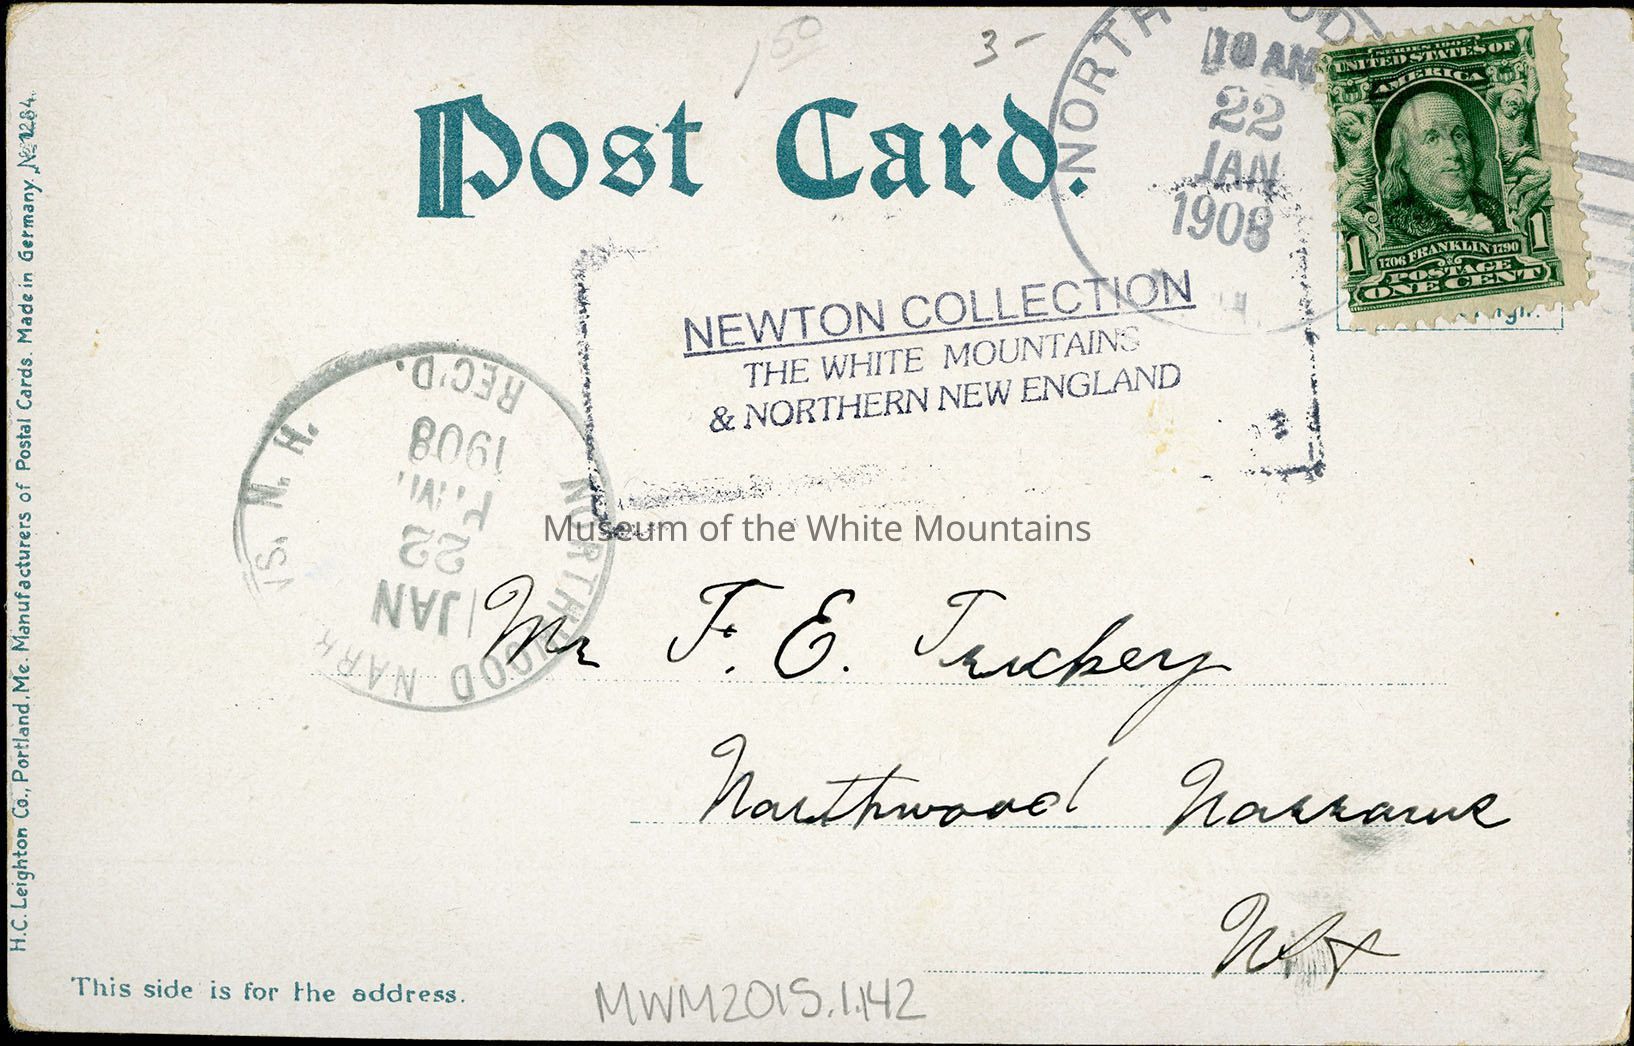 150
3-
Post Card.
NORTHWOOD
10 AM
22
JAN
1908
SERIES 1902
UNITED STATES OF
AMERICA
1706 FRANKLIN 1790
1 1
POSTAGE
ONE CENT
NEWTON COLLECTION
THE WHITE MOUNTAINS
& NORTHERN NEW ENGLAND
NORTHWOOD NARR S. N. H.
JAN
22
P.M.
1908
REC'D.
Museum of the White Mountains
Mr F. E. Trickey
Northwood Narrows
N H
This side is for the address.
MWM2015.1.142
H.C. Leighton Co., Portland, Me. Manufacturers of Postal Cards. Made in Germany. No 1284.